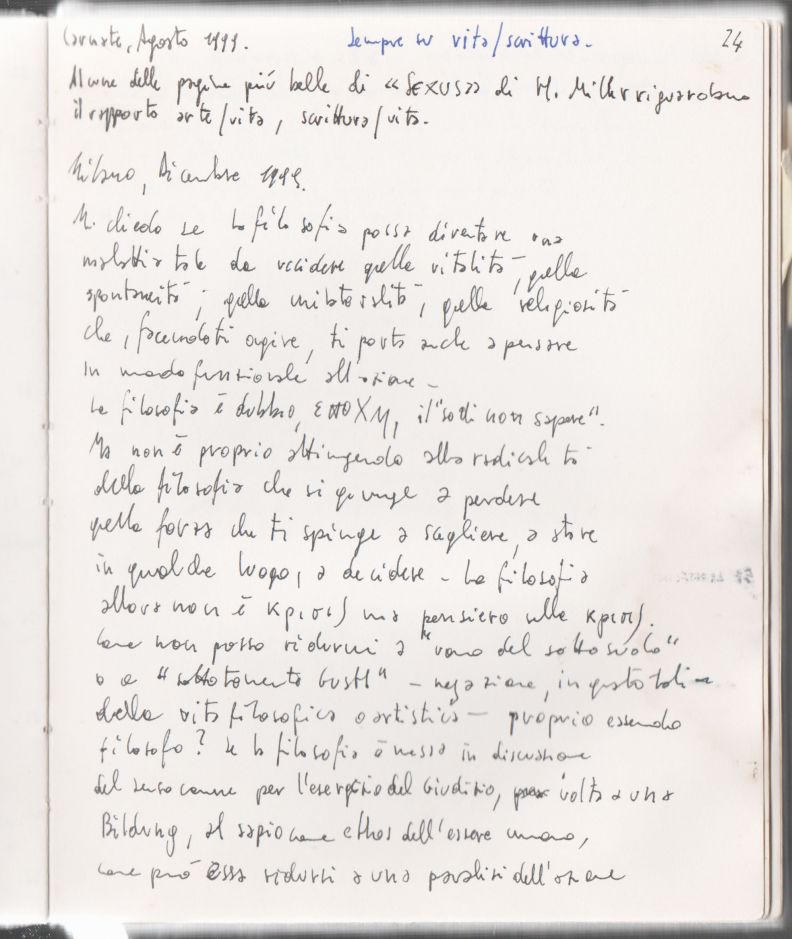 Carnate, Agosto 1999. Sempre su vita/scrittura. 24
Alcune delle pagine più belle di "SEXUS" di H. Miller riguardano
il rapporto arte/vita, scrittura/vita.
Milano, Dicembre 1999.
Mi chiedo se la filosofia possa diventare una
malattia tale da uccidere quella vitalità, quella
spontaneità, quella unilateralità, quella religiosità
che, facendoti agire, ti porta anche a pensare
in modo funzionale all'azione -
La filosofia è dubbio, il "so di non sapere".
Ma non è proprio attingendo alla radicalità
della filosofia che si giunge a perdere
quella forza che ti spinge a scegliere, a stare
in qualche luogo, a decidere - La filosofia
allora non è κρισις ma pensiero sulla κρισις.
Come non posso ridurmi a "uomo del sottosuolo"
o a "sottotenente Gustl" - negazione, in quanto tali -
della vita filosofica o artistica - proprio essendo
filosofo? Se la filosofia è messa in discussione
del senso comune per l'esercizio del Giudizio, volta a una
Bildung, al sapio come ethos dell'essere umano,
come può essa ridursi a una paralisi dell'azione